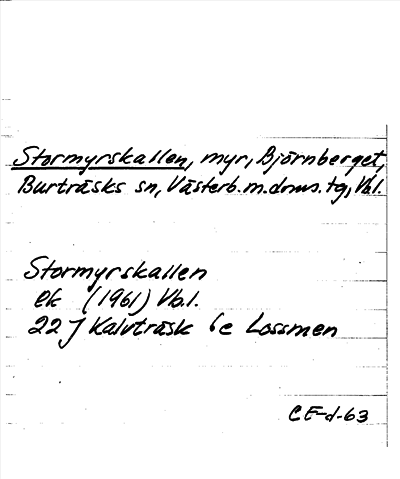 Stormyrskallen, myr, Björnberget,
Burträsks sn, Västerb. m. doms. tg, Vbl.
Stormyrskallen
ek (1961) Vb.l.
22 J Kalvträsk 6e Lossmen
CE-d-63